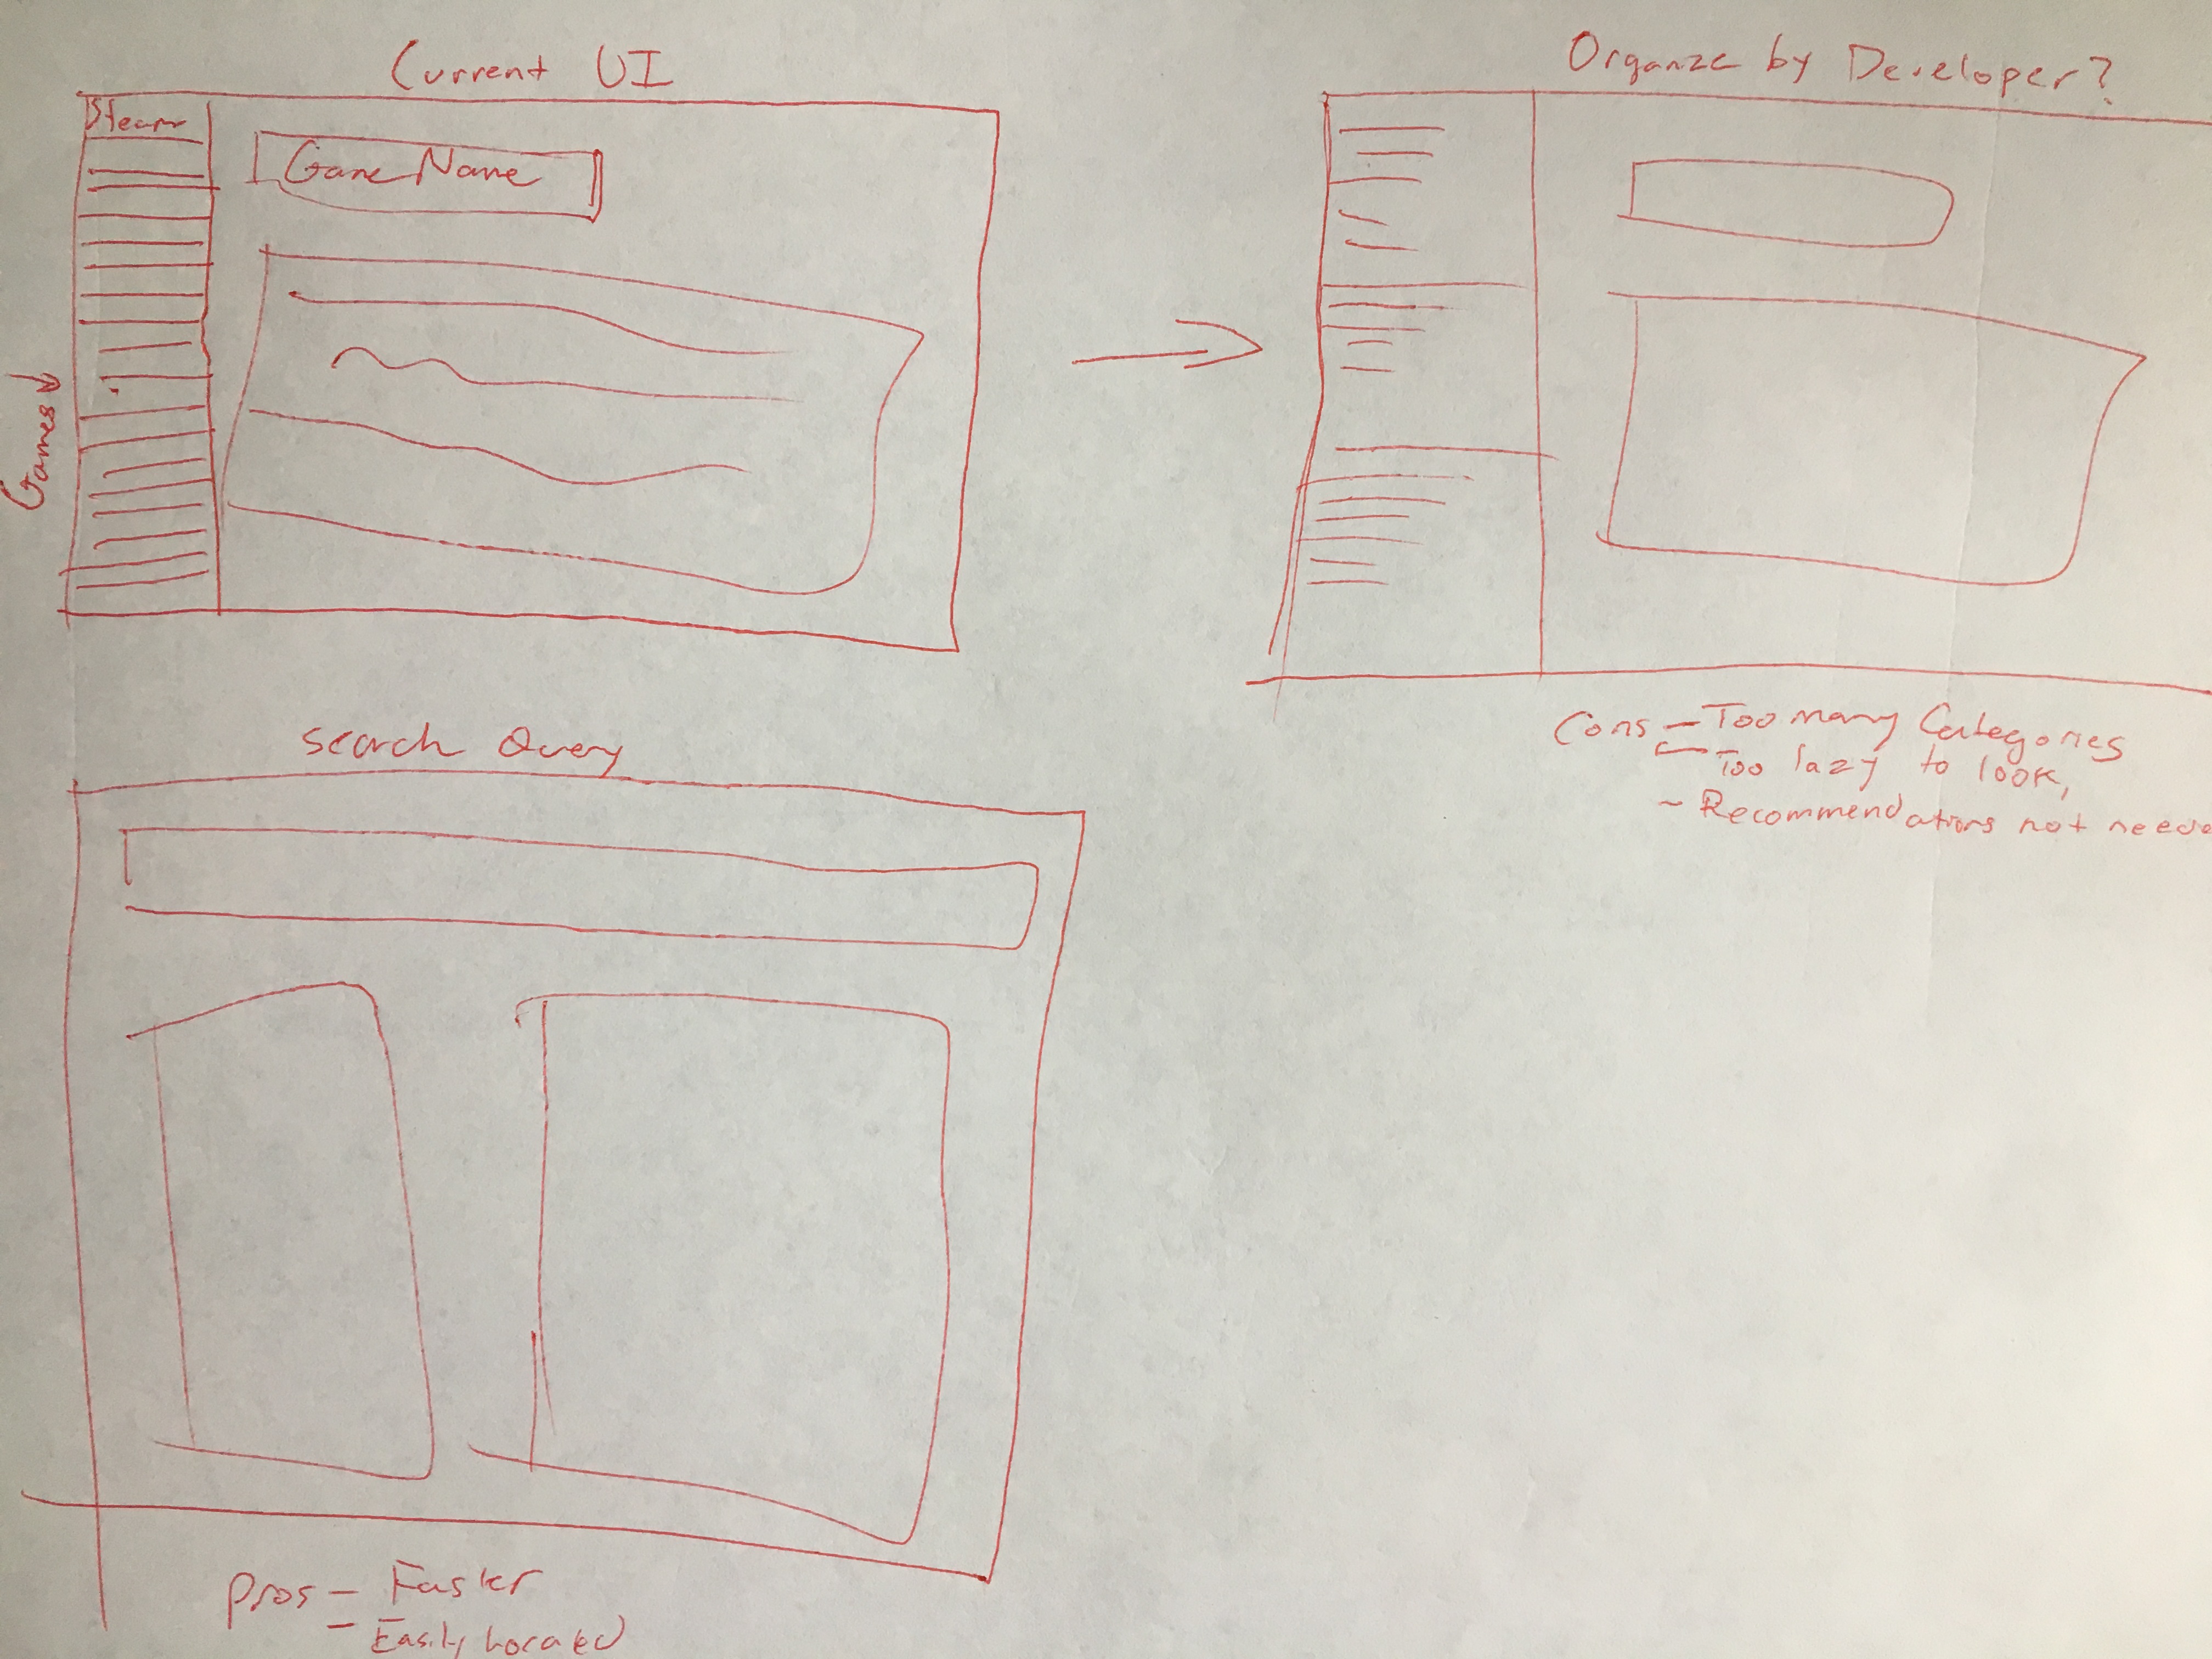 Current UI
Steam
Game Name
Games
Organze by Developer?
Cons - Too many Categories
- Too lazy to look,
- Recommendations not neede
search Query
Pros - Faster
- Easily Located